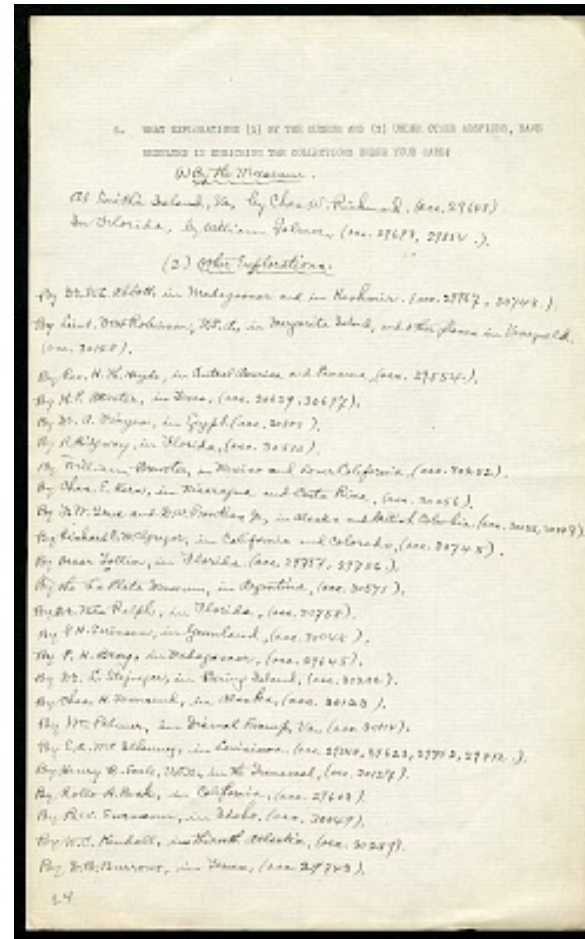 6. WHAT EXPLORATIONS (1) BY THE MUSEUM AND (2) UNDER OTHER AUSPICES, HAVE
RESULTED IN ENRICHING THE COLLECTIONS UNDER YOUR CARE?
(1) By the Museum.
At Smith's Island, Va, by Chas. W. Richmond. (acc. 29608)
In Florida, by William Palmer, (acc.
(2) Other Explorations.
By Dr. W. L. Abbott, in Madagascar and in Kashmir. (acc.
By Lieut. Wirt Robinson, U.S.A., in Margarita Island, and other places in Venezuela.
(acc. 30158).
By Rev. H. Th. Heyde, in Central America and Panama, (acc. 29554.).
By H. P. Attwater, in Texas, (acc. 30629, 30697).
By Dr. A. in Egypt (acc.
By R. Ridgway, in Florida, (acc.
By William Brewster, in Mexico and Lower California, (acc. 30252).
By Chas. E. Kern, in Nicaragua and Costa Rica, (acc. 30056).
By F. W. True and D. W. Prentiss Jr., in Alaska and British Columbia, (acc.
By Richard C. McGregor, in California and Colorado, (acc. 30745).
By Oscar in Florida (acc. 29757, 29786.).
By the La Plata Museum, in Argentina, (acc. 30571).
By Dr. Ralph, in Florida, (acc. 30758).
By in Greenland, (acc. 30044).
By in Madagascar, (acc. 29645).
By Dr. L. Stejneger, in Bering Island, (acc.
By Chas. H. Townsend, in Alaska, (acc. 30123).
By Wm Palmer, in Dismal Swamp, Va. (acc.
By E. A. McIlhenny, in Louisiana (acc.
By Henry in the Transvaal, (acc. 30127).
By Rollo H. Beck, in California, (acc. 29603).
By in Idaho, (acc. 30049).
By W. C. Kendall, in the North Atlantic, (acc. 30259).
By D. B. Burrows, in Texas, (acc. 29743).
24